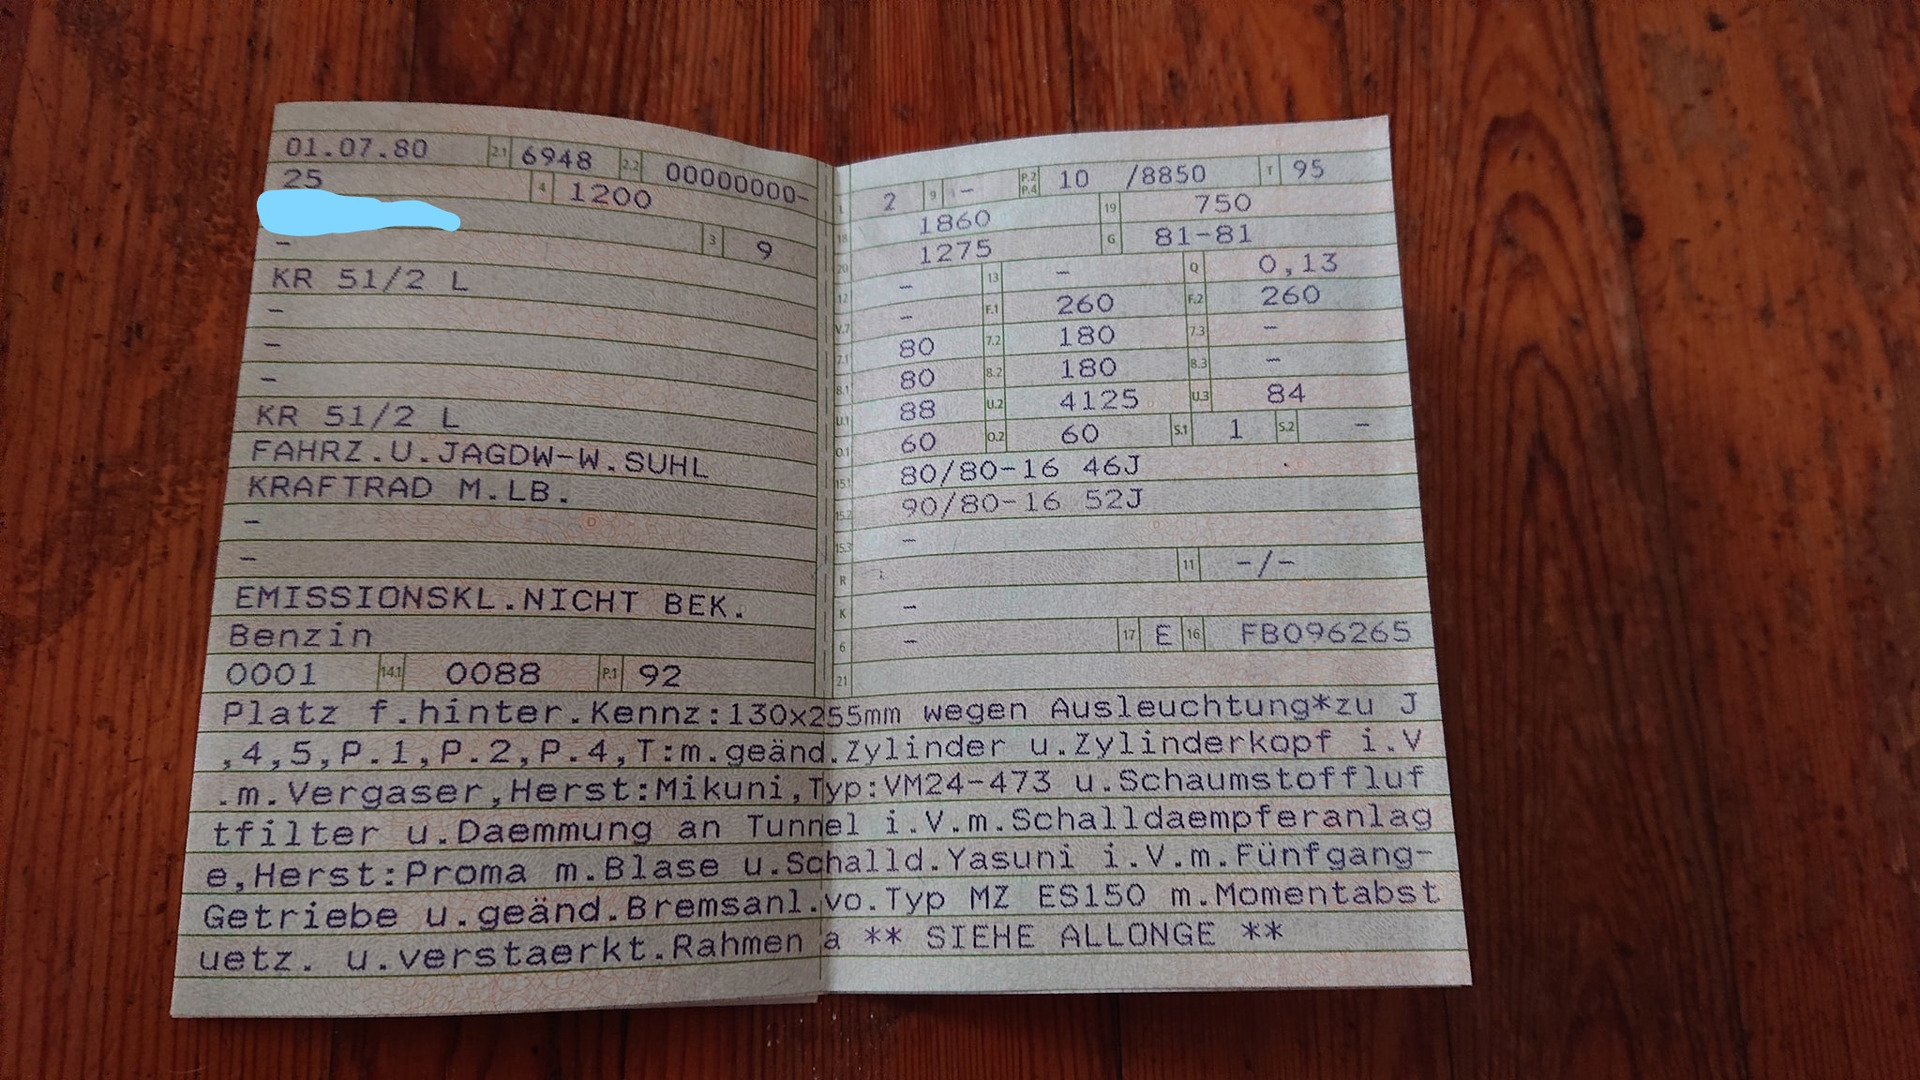 01.07.80 2.1 6948 2.2 00000000-
25 4 1200
- 3 9
KR 51/2 L
-
-
-
KR 51/2 L
FAHRZ.U.JAGDW-W.SUHL
KRAFTRAD M.LB.
-
-
EMISSIONSKL.NICHT BEK.
Benzin
0001 14.1 0088 P.1 92
L 2 9 - P.2 P.4 10 /8850 T 95
18 1860 19 750
20 1275 G 81-81
12 - 13 - Q 0,13
V.7 - F.1 260 F.2 260
7.1 80 7.2 180 7.3 -
8.1 80 8.2 180 8.3 -
U.1 88 U.2 4125 U.3 84
O.1 60 O.2 60 S.1 1 S.2 -
15.1 80/80-16 46J
15.2 90/80-16 52J
15.3 -
R 11 -/-
K -
6 - 17 E 16 FB096265
21
Platz f.hinter.Kennz:130x255mm wegen Ausleuchtung*zu J
,4,5,P.1,P.2,P.4,T:m.geänd.Zylinder u.Zylinderkopf i.V
.m.Vergaser,Herst:Mikuni,Typ:VM24-473 u.Schaumstoffluf
tfilter u.Daemmung an Tunnel i.V.m.Schalldaempferanlag
e,Herst:Proma m.Blase u.Schalld.Yasuni i.V.m.Fünfgang-
Getriebe u.geänd.Bremsanl.vo.Typ MZ ES150 m.Momentabst
uetz. u.verstaerkt.Rahmen a ** SIEHE ALLONGE **